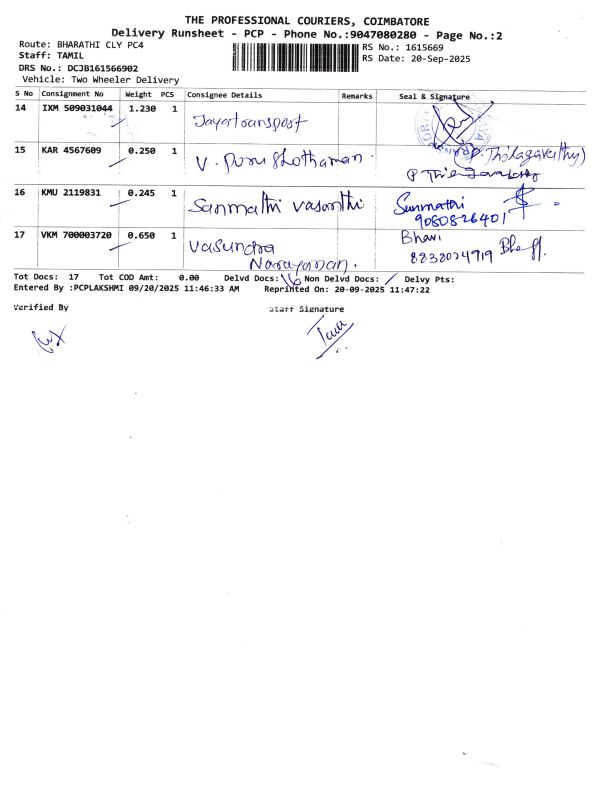 THE PROFESSIONAL COURIERS, COIMBATORE
Delivery Runsheet - PCP - Phone No.:9047080280 - Page No.:2
Route: BHARATHI CLY PC4
Staff: TAMIL
RS No.: 1615669
RS Date: 20-Sep-2025
DRS No.: DCJB161566902
Vehicle: Two Wheeler Delivery
S No Consignment No Weight PCS Consignee Details Remarks Seal & Signature
14 IXM 509031044 1.230 1 Jayatransport
15 KAR 4567609 0.250 1 V. Purushothaman
16 KMU 2119831 0.245 1 Sanmathi vasanthi Sunmathi
9080826401
17 VKM 700003720 0.650 1 Vasundra Bhavi
Narayanan. 8838024719
Tot Docs: 17 Tot COD Amt: 0.00 Delvd Docs: 16 Non Delvd Docs: / Delvy Pts:
Entered By :PCPLAKSHMI 09/20/2025 11:46:33 AM Reprinted On: 20-09-2025 11:47:22
Verified By Staff Signature